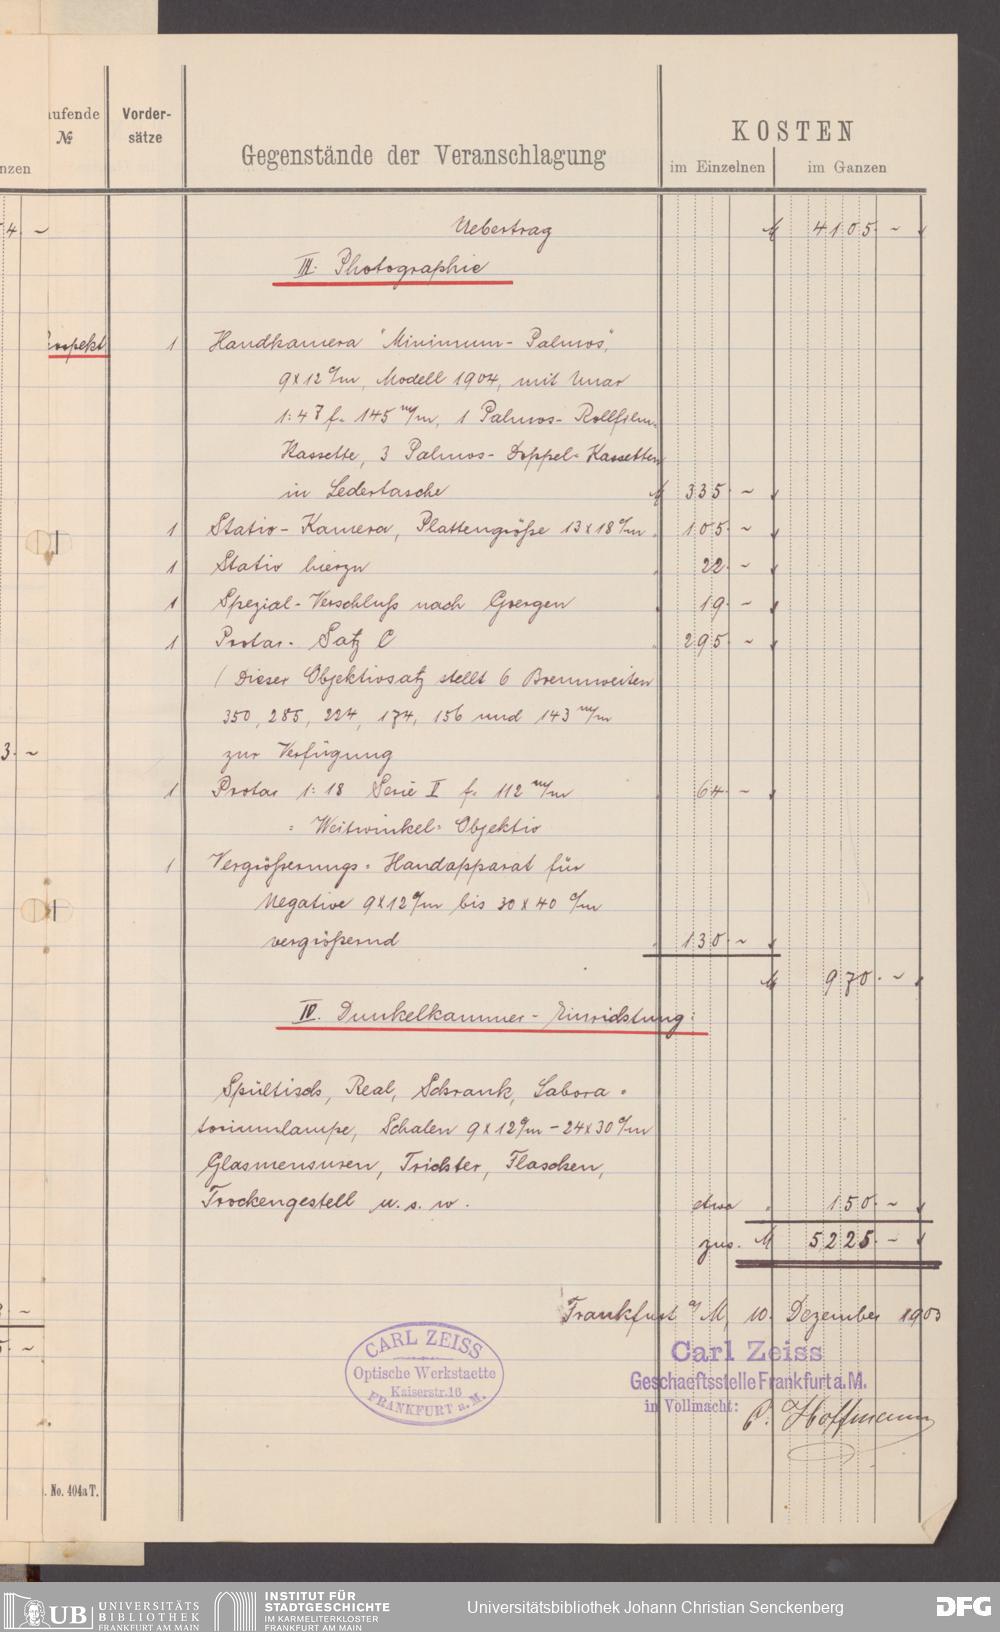 aufende
№
nzen
Vorder-
sätze
Gegenstände der Veranschlagung
KOSTEN
im Einzelnen
im Ganzen
4. ~
Uebertrag M 4105. ~
III. Photographie
rospekt
1 Handkamera "Minimum-Palmos",
9x12 c/m, Modell 1904, mit Unar
1:4,7 f. 145 m/m, 1 Palmos-Rollfilm-
Kassette, 3 Palmos-Doppel-Kassetten
in Ledertasche M 335. ~
1 Stativ-Kamera, Plattengröße 13x18 c/m " 105. ~
1 Stativ hierzu " 22. ~
1 Spezial-Verschluß nach Goergen " 19. ~
1 Protar-Satz C " 295. ~
(Dieser Objektivsatz stellt 6 Brennweiten
350, 285, 224, 174, 156 und 143 m/m
zur Verfügung
3. ~
1 Protar 1:18 Serie V f. 112 m/m " 64. ~
= Weitwinkel-Objektiv
1 Vergrößerungs-Handapparat für
Negative 9x12 c/m bis 30x40 c/m
vergrößernd " 130. ~
M 970. ~
IV. Dunkelkammer-Einrichtung:
Spültisch, Real, Schrank, Labora-
toriumlampe, Schalen 9x12 c/m - 24x30 c/m
Glasmensuren, Trichter, Flaschen,
Trockengestell u.s.w. etwa " 150. ~
zus. M 5225. ~
Frankfurt a/M, 10. Dezember 1903
CARL ZEISS
Optische Werkstaette
Kaiserstr. 16
FRANKFURT a. M.
Carl Zeiss
Geschaeftsstelle Frankfurt a. M.
in Vollmacht: P. Hoffmann
. No. 404a T.
UB UNIVERSITÄTS
BIBLIOTHEK
FRANKFURT AM MAIN
INSTITUT FÜR
STADTGESCHICHTE
IM KARMELITERKLOSTER
FRANKFURT AM MAIN
Universitätsbibliothek Johann Christian Senckenberg
DFG